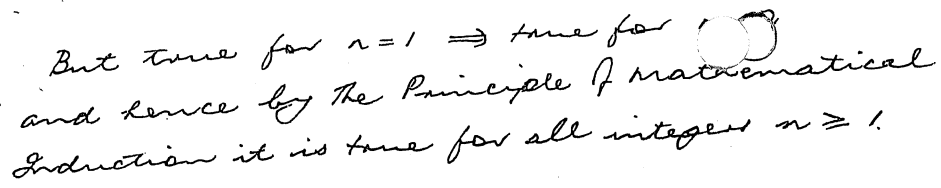 But true for n = 1 ⇒ true for
and hence by the Principle of Mathematical
Induction it is true for all integers n ≥ 1.